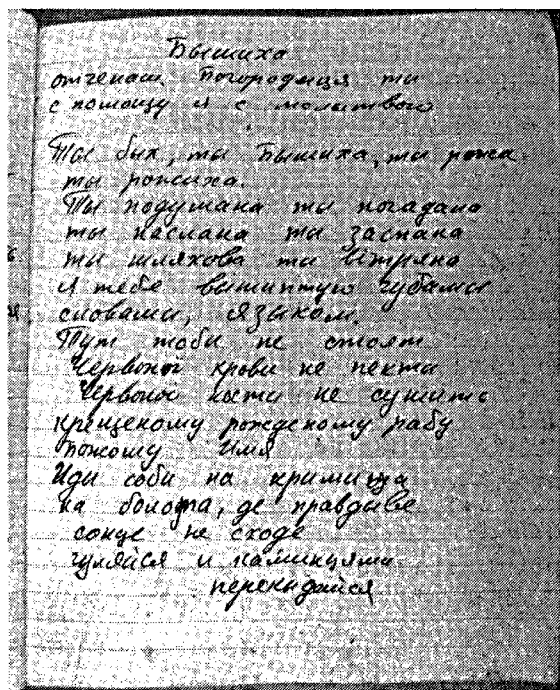 Бышиха
отченаш. Богородиця ти
с помощу я с молитвою
Ты бых, ты Бышиха, ты рожа
ты рожиха.
Ты подумана ты погадана
ты наслана ты заспана
ты шляхова ты вітряна
я тебе вышиптую губами
словами, языком.
Тут тоби не стоят
Червоной крови не пекти
Червоной кости не сушить
крещеному рожденому рабу
Божому Имя
Иди соби на кримища
на болота, де правдыве
сонце не сходе
гуляйся и каминцями
перекидайся